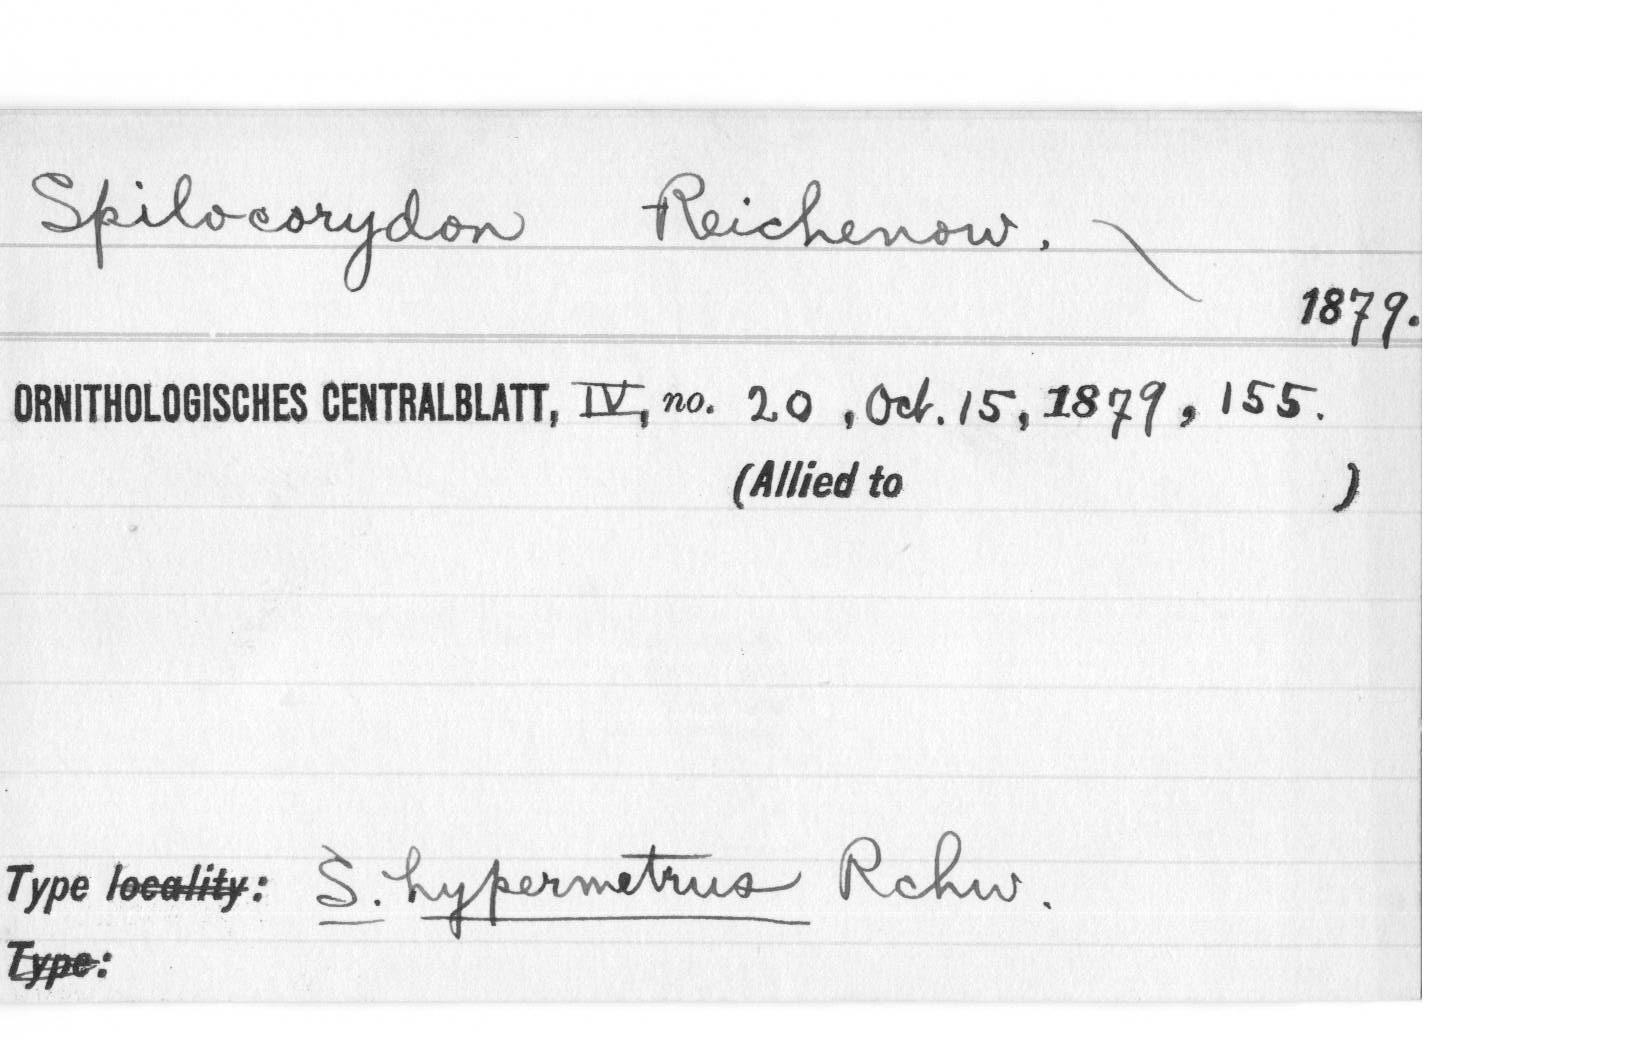 Spilocorydon Reichenow.
1879.
ORNITHOLOGISCHES CENTRALBLATT, IV, no. 20, Oct. 15, 1879, 155.
(Allied to )
Type locality: S. hypermetrus Rchw.
Type: